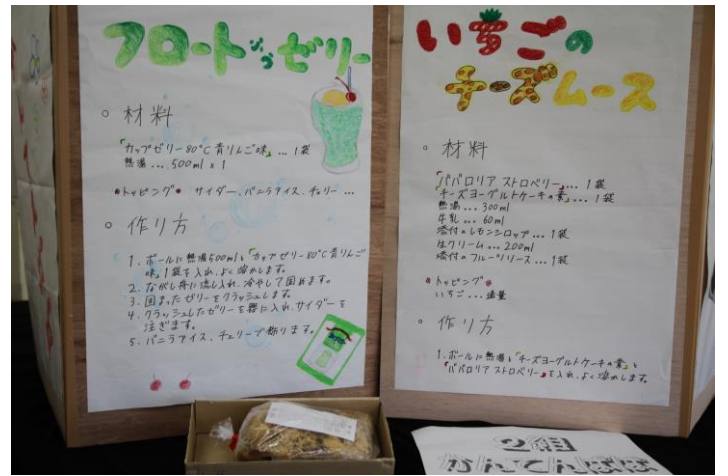 フロートソーダゼリー
○ 材料
「カップゼリー80℃青りんご味」… 1袋
熱湯 … 500ml×1
●トッピング● サイダー、バニラアイス、チェリー …
○ 作り方
1. ボールに熱湯500mlと「カップゼリー80℃青りんご
味」1袋を入れ、よく溶かします。
2. ながし舟に流し入れ、冷やして固めます。
3. 固まったゼリーをクラッシュします。
4. クラッシュしたゼリーを器に入れ、サイダーを
注ぎます。
5. バニラアイス、チェリーで飾ります。
いちごの
チーズムース
○ 材料
「ババロリア ストロベリー」… 1袋
「チーズヨーグルトケーキの素」… 1袋
熱湯 … 300ml
牛乳 … 60ml
添付のレモンシロップ … 1袋
生クリーム … 200ml
添付のフルーツソース … 1袋
●トッピング●
いちご … 適量
○ 作り方
1. ボールに熱湯と「チーズヨーグルトケーキの素」と
「ババロリア ストロベリー」を入れ、よく溶かします。
2組
かんてんぱぱ